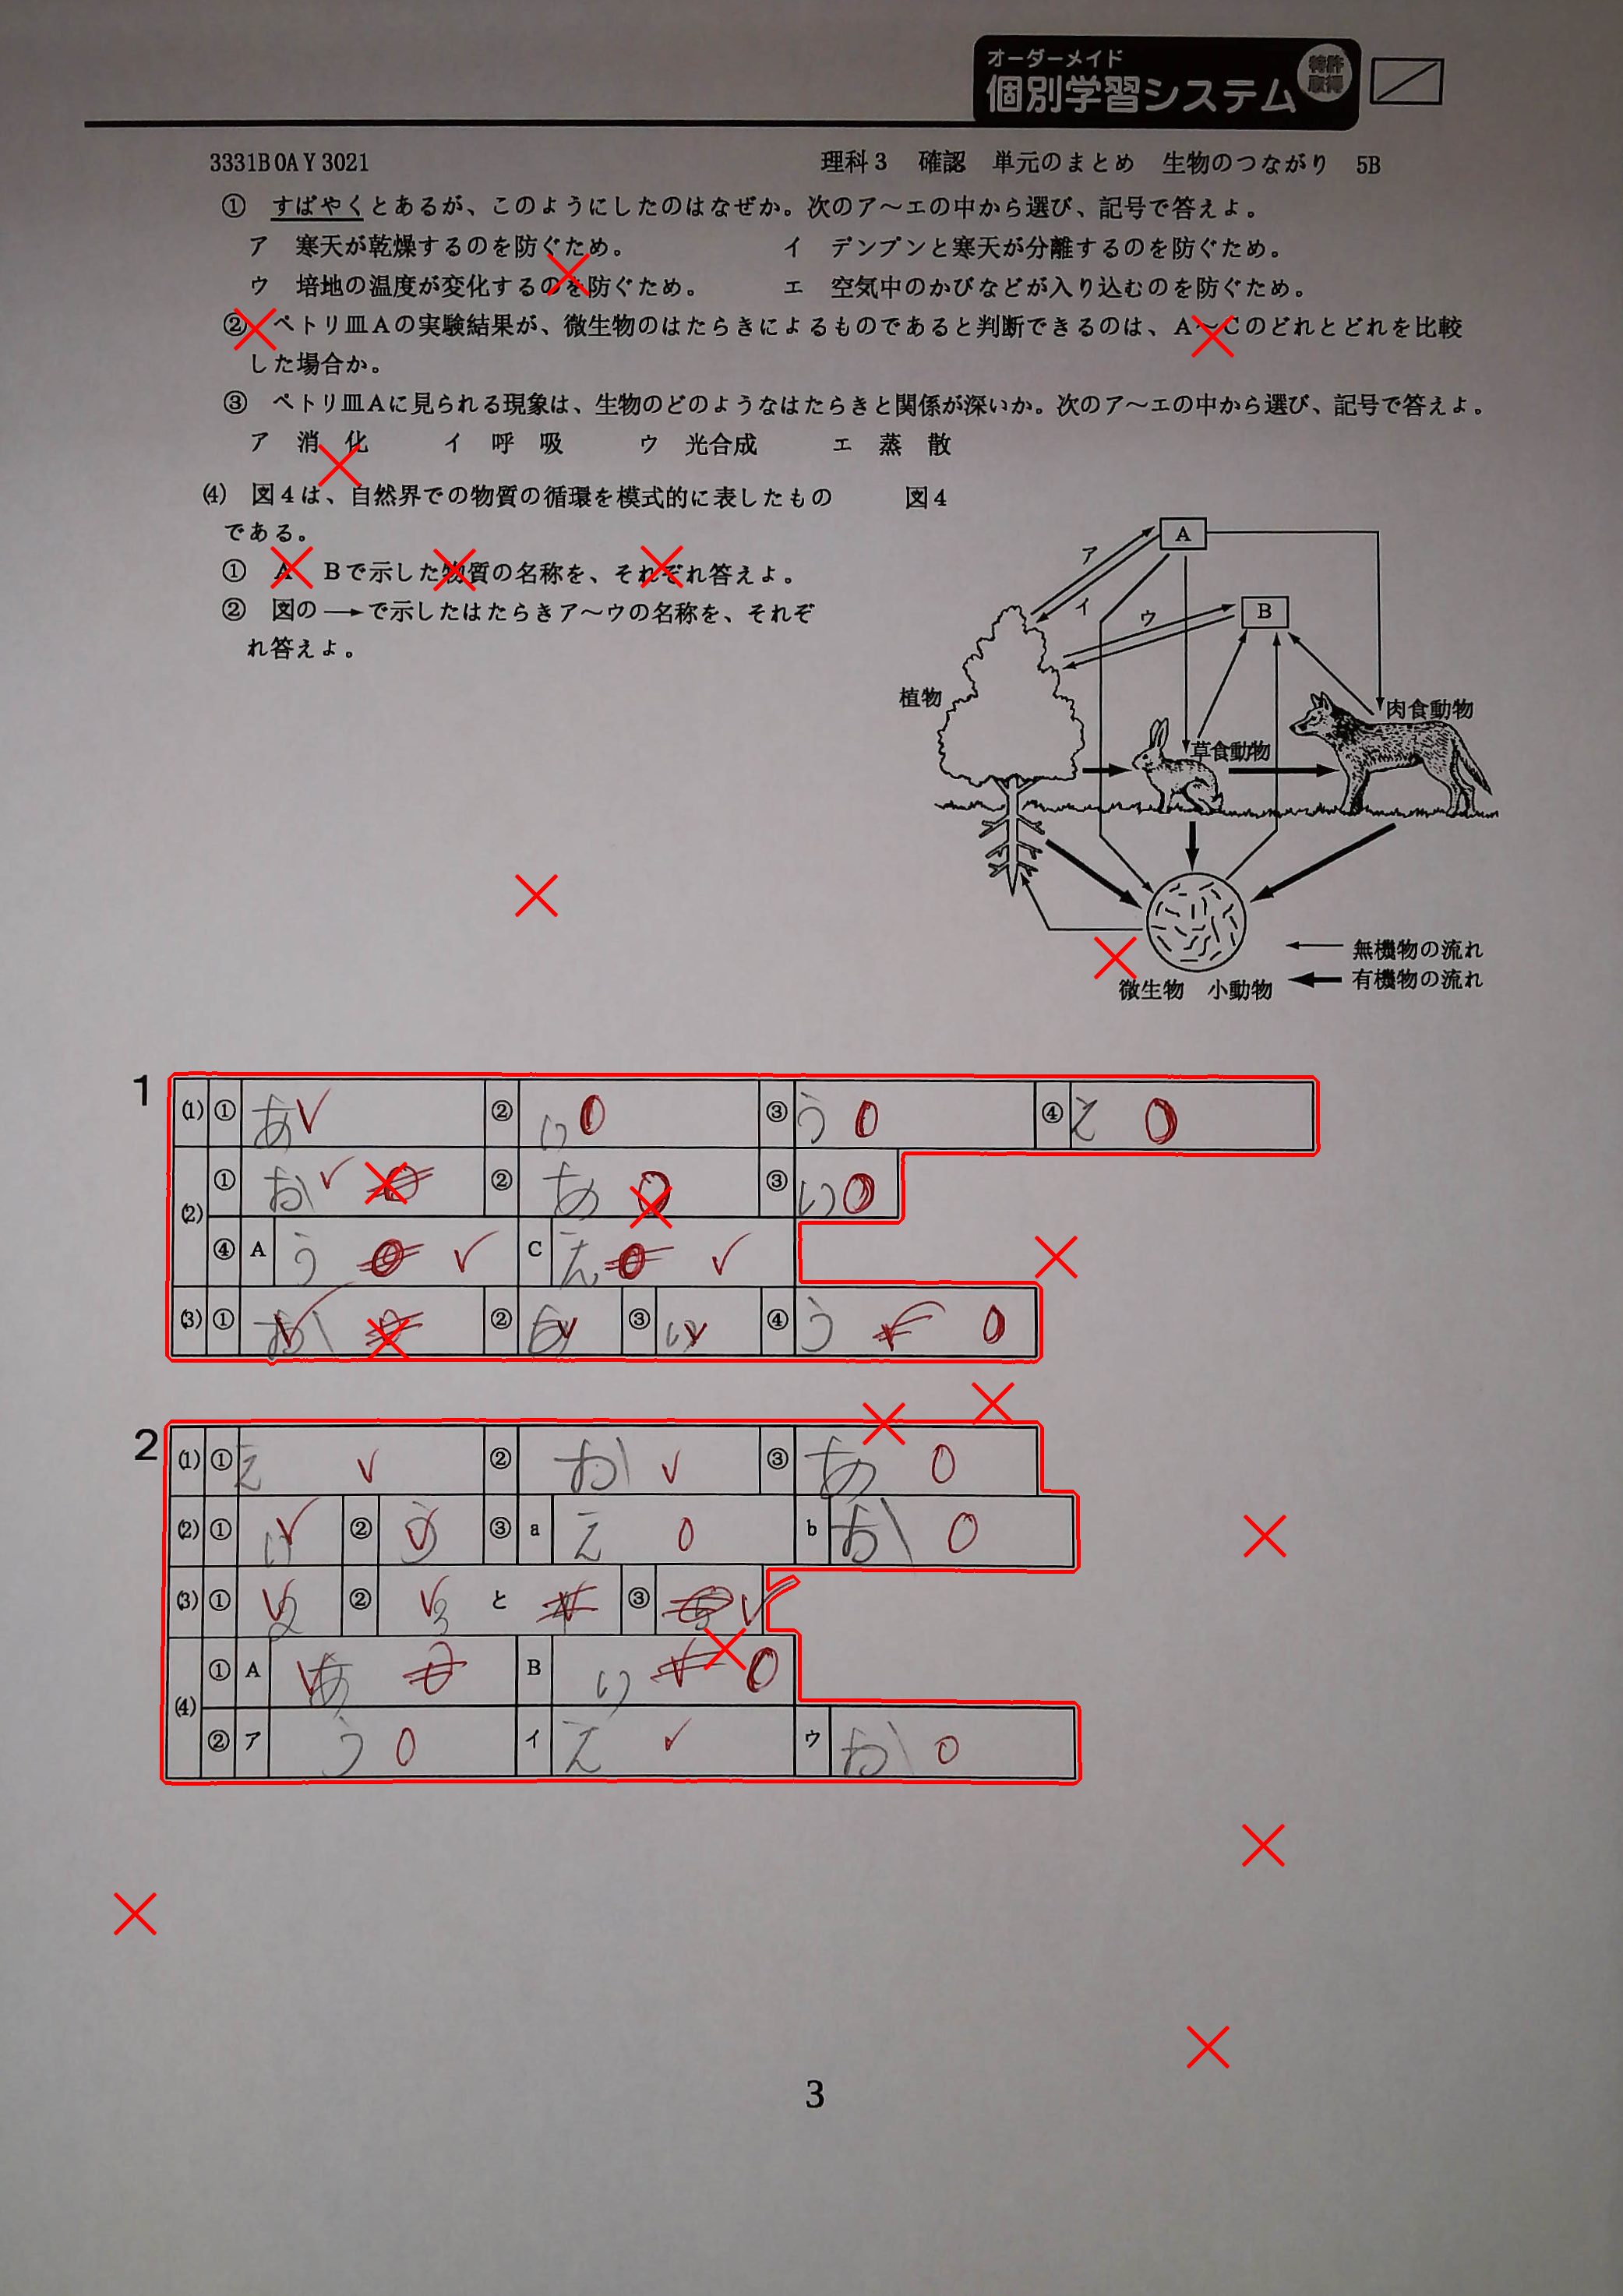 オーダーメイド
個別学習システム
特許
取得
3331B0AY3021 理科3 確認 単元のまとめ 生物のつながり 5B
① すばやくとあるが、このようにしたのはなぜか。次のア〜エの中から選び、記号で答えよ。
ア 寒天が乾燥するのを防ぐため。 イ デンプンと寒天が分離するのを防ぐため。
ウ 培地の温度が変化するのを防ぐため。 エ 空気中のかびなどが入り込むのを防ぐため。
② ペトリ皿Aの実験結果が、微生物のはたらきによるものであると判断できるのは、A〜Cのどれとどれを比較
した場合か。
③ ペトリ皿Aに見られる現象は、生物のどのようなはたらきと関係が深いか。次のア〜エの中から選び、記号で答えよ。
ア 消 化 イ 呼 吸 ウ 光合成 エ 蒸 散
(4) 図4は、自然界での物質の循環を模式的に表したもの
である。
① A Bで示した物質の名称を、それぞれ答えよ。
② 図の→で示したはたらきア〜ウの名称を、それぞ
れ答えよ。
図4
A
ア
イ
ウ
B
植物
肉食動物
草食動物
無機物の流れ
微生物 小動物
有機物の流れ
1
(1) ① あ ② い ③ う ④ え
(2) ① お ② あ ③ い
④ A う C え
(3) ① お ② あ ③ い ④ う
2
(1) ① え ② お ③ あ
(2) ① い ② う ③ a え b お
(3) ① 2 ② 3 と ③
(4) ① A あ B い
② ア う イ え ウ お
3